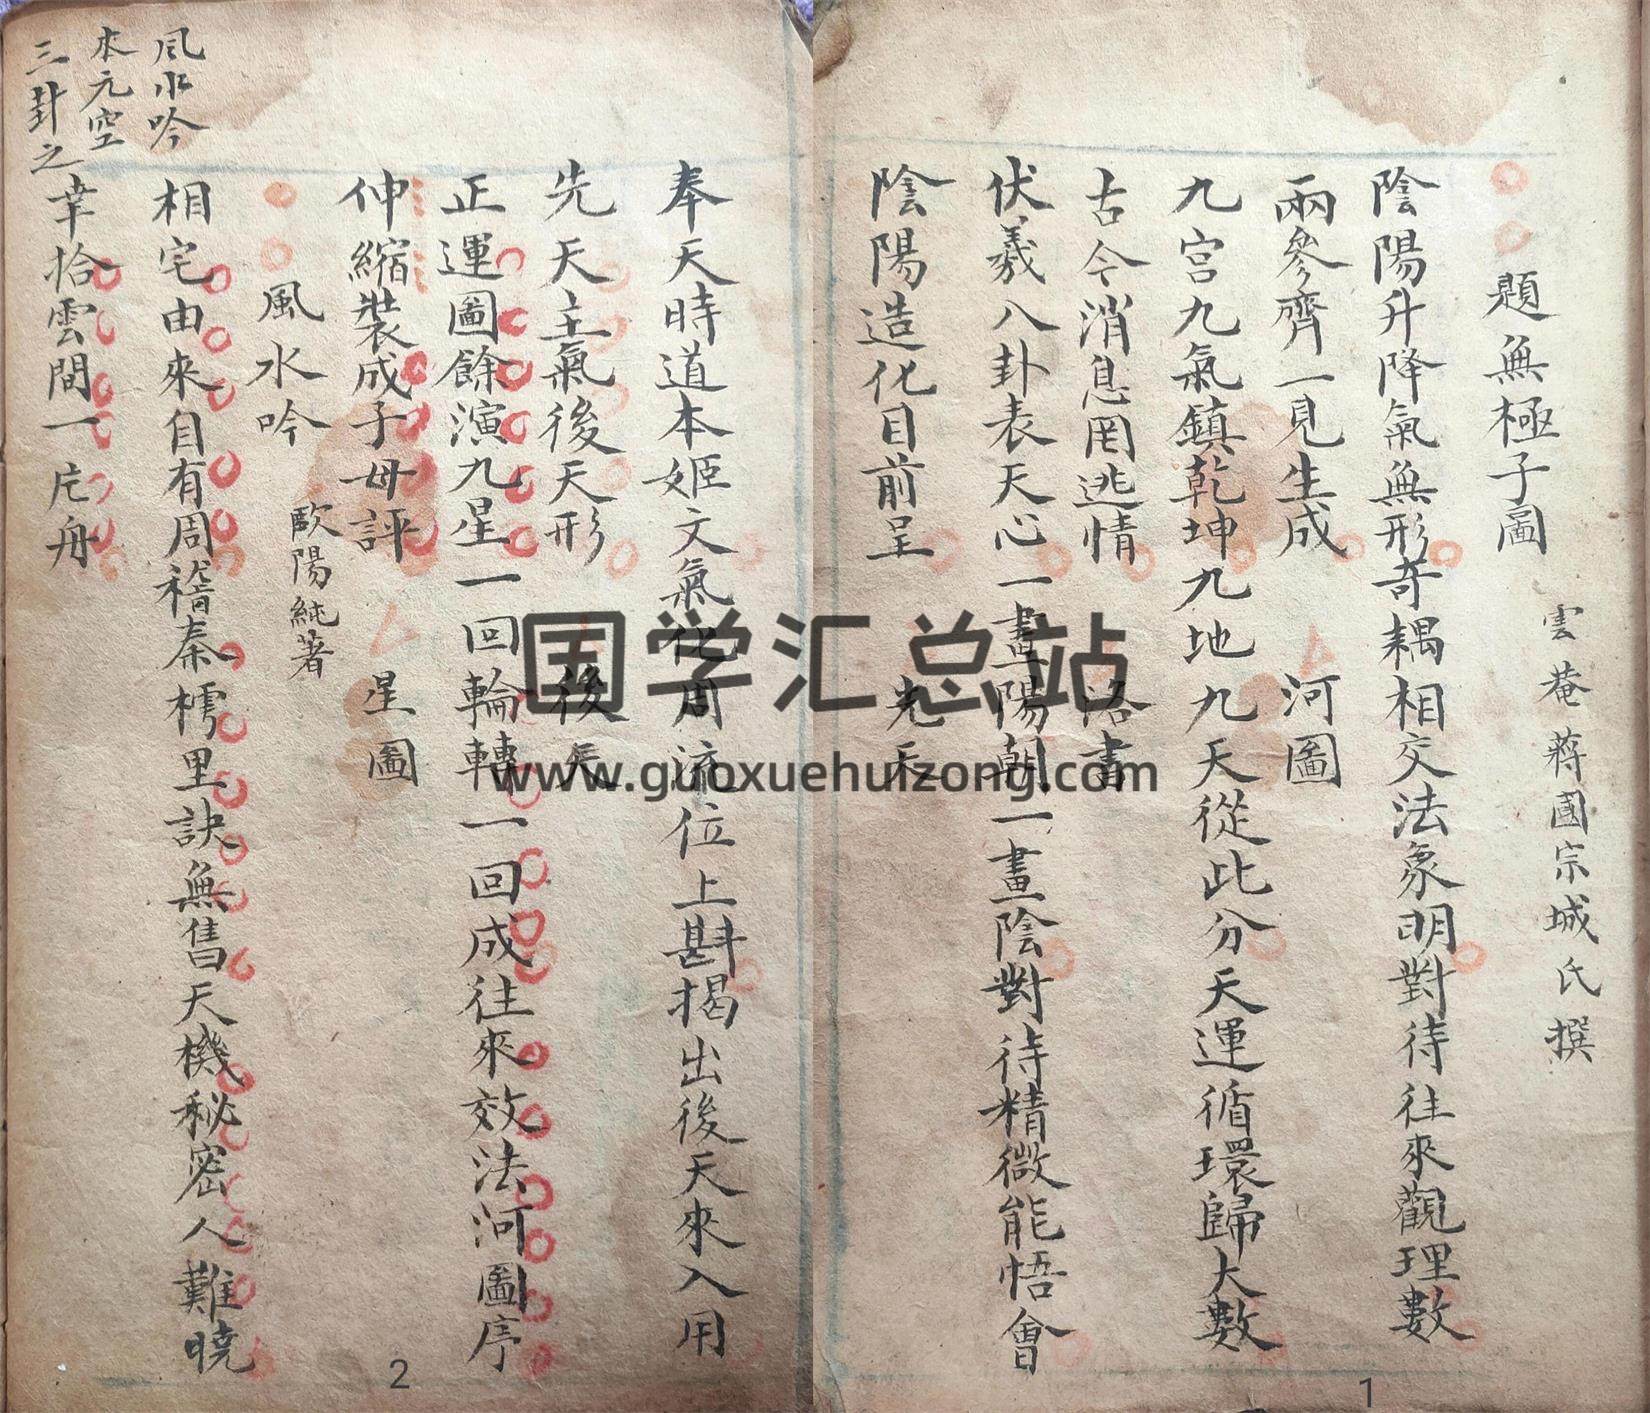 題無極子圖
雲菴蔣國宗城氏撰
陰陽升降氣無形奇耦相交法象明對待往來觀理數
兩參齊一見生成 河圖
九宮九氣鎮乾坤九地九天從此分天運循環歸大數
古今消息罔逃情 洛書
伏羲八卦表天心一畫陽朝一畫陰對待精微能悟會
陰陽造化目前呈 先天
1
奉天時道本姬文氣化周流位上斟揭出後天來入用
先天主氣後天形 後天
正運圖餘演九星一回輪轉一回成往來效法河圖序
伸縮裝成子母評 星圖
風水吟 歐陽純著
相宅由來自有周稽秦樗里訣無售天機秘密人難曉
幸拾雲間一片舟
風水吟
本元空
三卦之
2
国学汇总站
www.guoxuehuizong.com